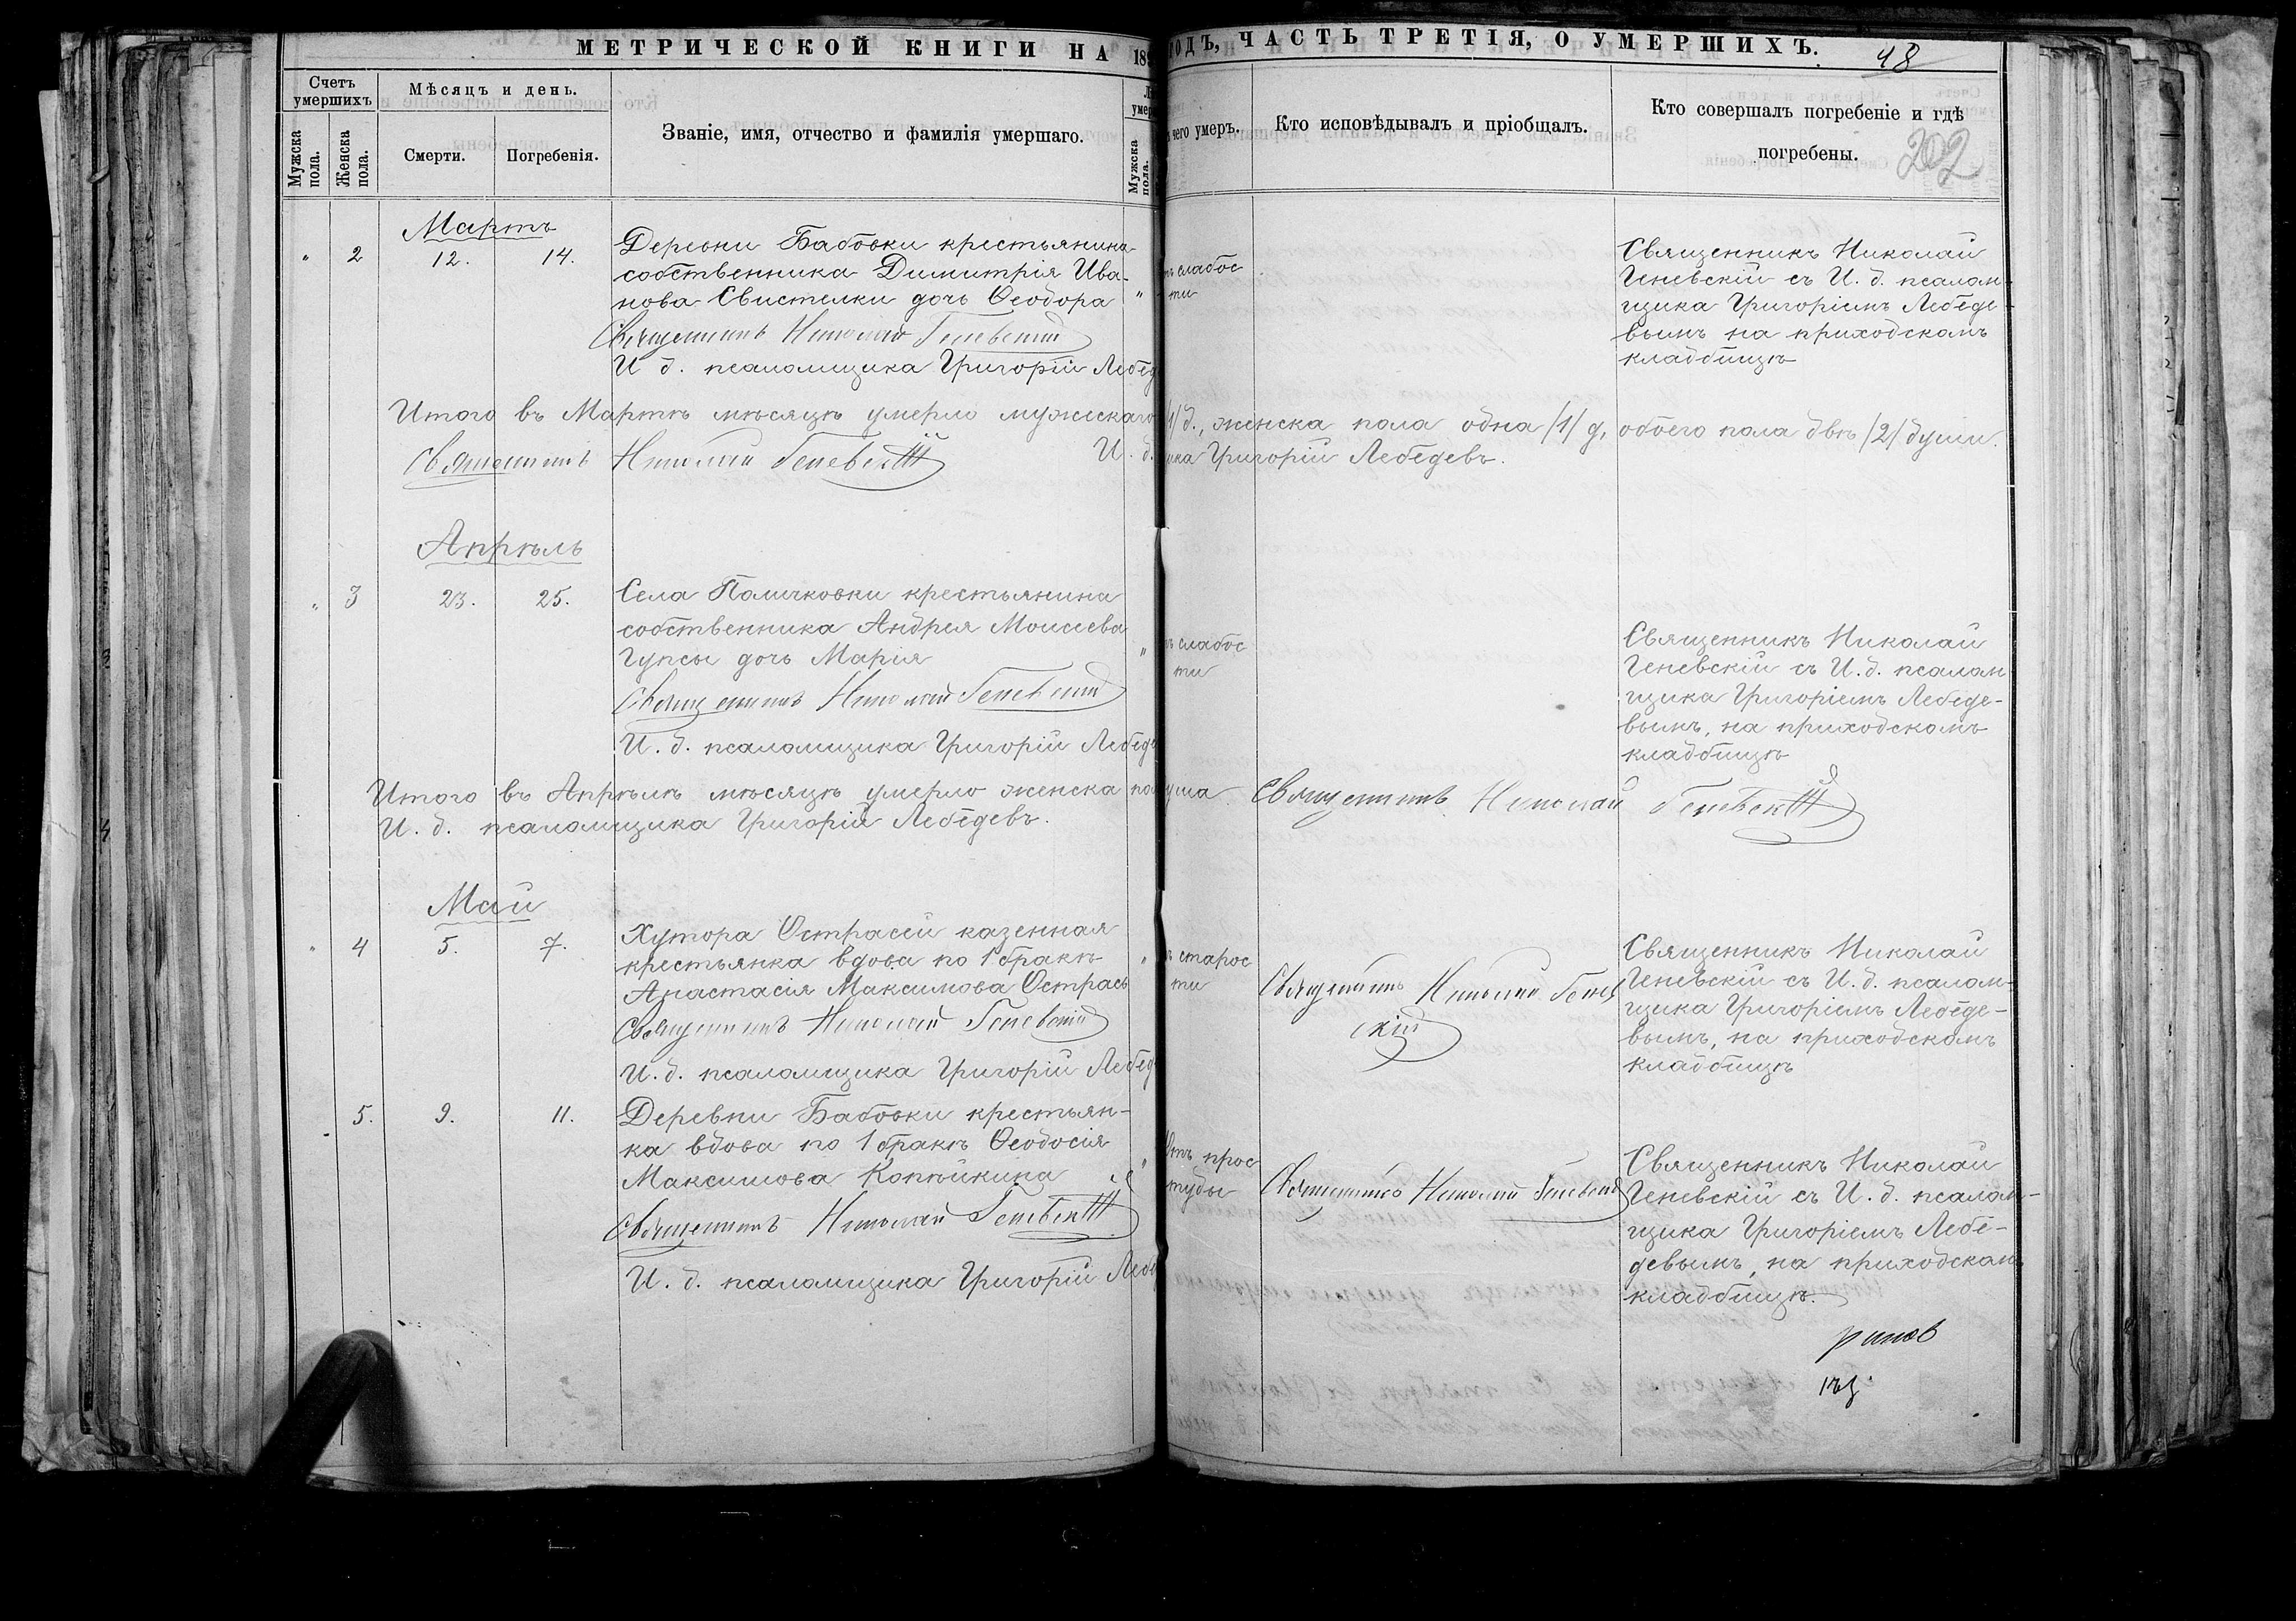 МЕТРИЧЕСКОЙ КНИГИ НА 18
ГОДЪ, ЧАСТЬ ТРЕТІЯ, О УМЕРШИХЪ.
48
202
Счетъ умершихъ
Мужска пола.
Женска пола.
Мѣсяцъ и день.
Смерти.
Погребенія.
Званіе, имя, отчество и фамилія умершаго.
Мужска пола.
чего умеръ.
Кто исповѣдывалъ и пріобщалъ.
Кто совершалъ погребеніе и гдѣ
погребены.
Мартъ
" 2 12. 14.
Деревни Бабовки крестьянина-
собственника Димитрія Ива-
нова Свистелки дочь Ѳеодора
Священникъ Николай Геневскій
И д. псаломщика Григорій Лебед
"
слабос
ти
Священникъ Николай
Геневскій съ И. д. псалом-
щика Григоріемъ Лебеде-
вымъ на приходскомъ
кладбищѣ
Итого въ Мартѣ мѣсяцѣ умерло мужескаго
/1/ д., женска пола одна /1/ д, обоего пола двѣ /2/ души.
Священникъ Николай Геневскій И. д.
ика Григорій Лебедевъ.
Апрѣль
" 3 23. 25.
Села Поличковки крестьянина
собственника Андрея Моисеева
Гупсы дочь Марія
Священникъ Николай Геневскій
И. д. псаломщика Григорій Лебеде
"
слабос
ти
Священникъ Николай
Геневскій съ И. д. псалом
щика Григоріемъ Лебеде-
вымъ, на приходскомъ
кладбищѣ
Итого въ Апрѣлѣ мѣсяцѣ умерло женска пол
уша Священникъ Николай Геневскій
И. д. псаломщика Григорій Лебедевъ.
Май
" 4 5. 7.
Хутора Острасей казенная
крестьянка вдова по 1 бракѣ
Анастасія Максимова Острась
Священникъ Николай Геневскій
И. д. псаломщика Григорій Лебед
"
старос
ти
Священникъ Николай Генев
скій
Священникъ Николай
Геневскій съ И. д. псалом-
щика Григоріемъ Лебеде-
вымъ, на приходскомъ
кладбищѣ
5. 9. 11.
Деревни Бабовки крестьян-
ка вдова по 1 бракѣ Ѳеодосія
Максимова Копѣйкина
Священникъ Николай Геневскій
И. д. псаломщика Григорій Лебе
"
Отъ прос
туды
Священникъ Николай Геневскій
Священникъ Николай
Геневскій съ И. д. псалом-
щика Григоріемъ Лебе-
девымъ, на приходскомъ
кладбищѣ.